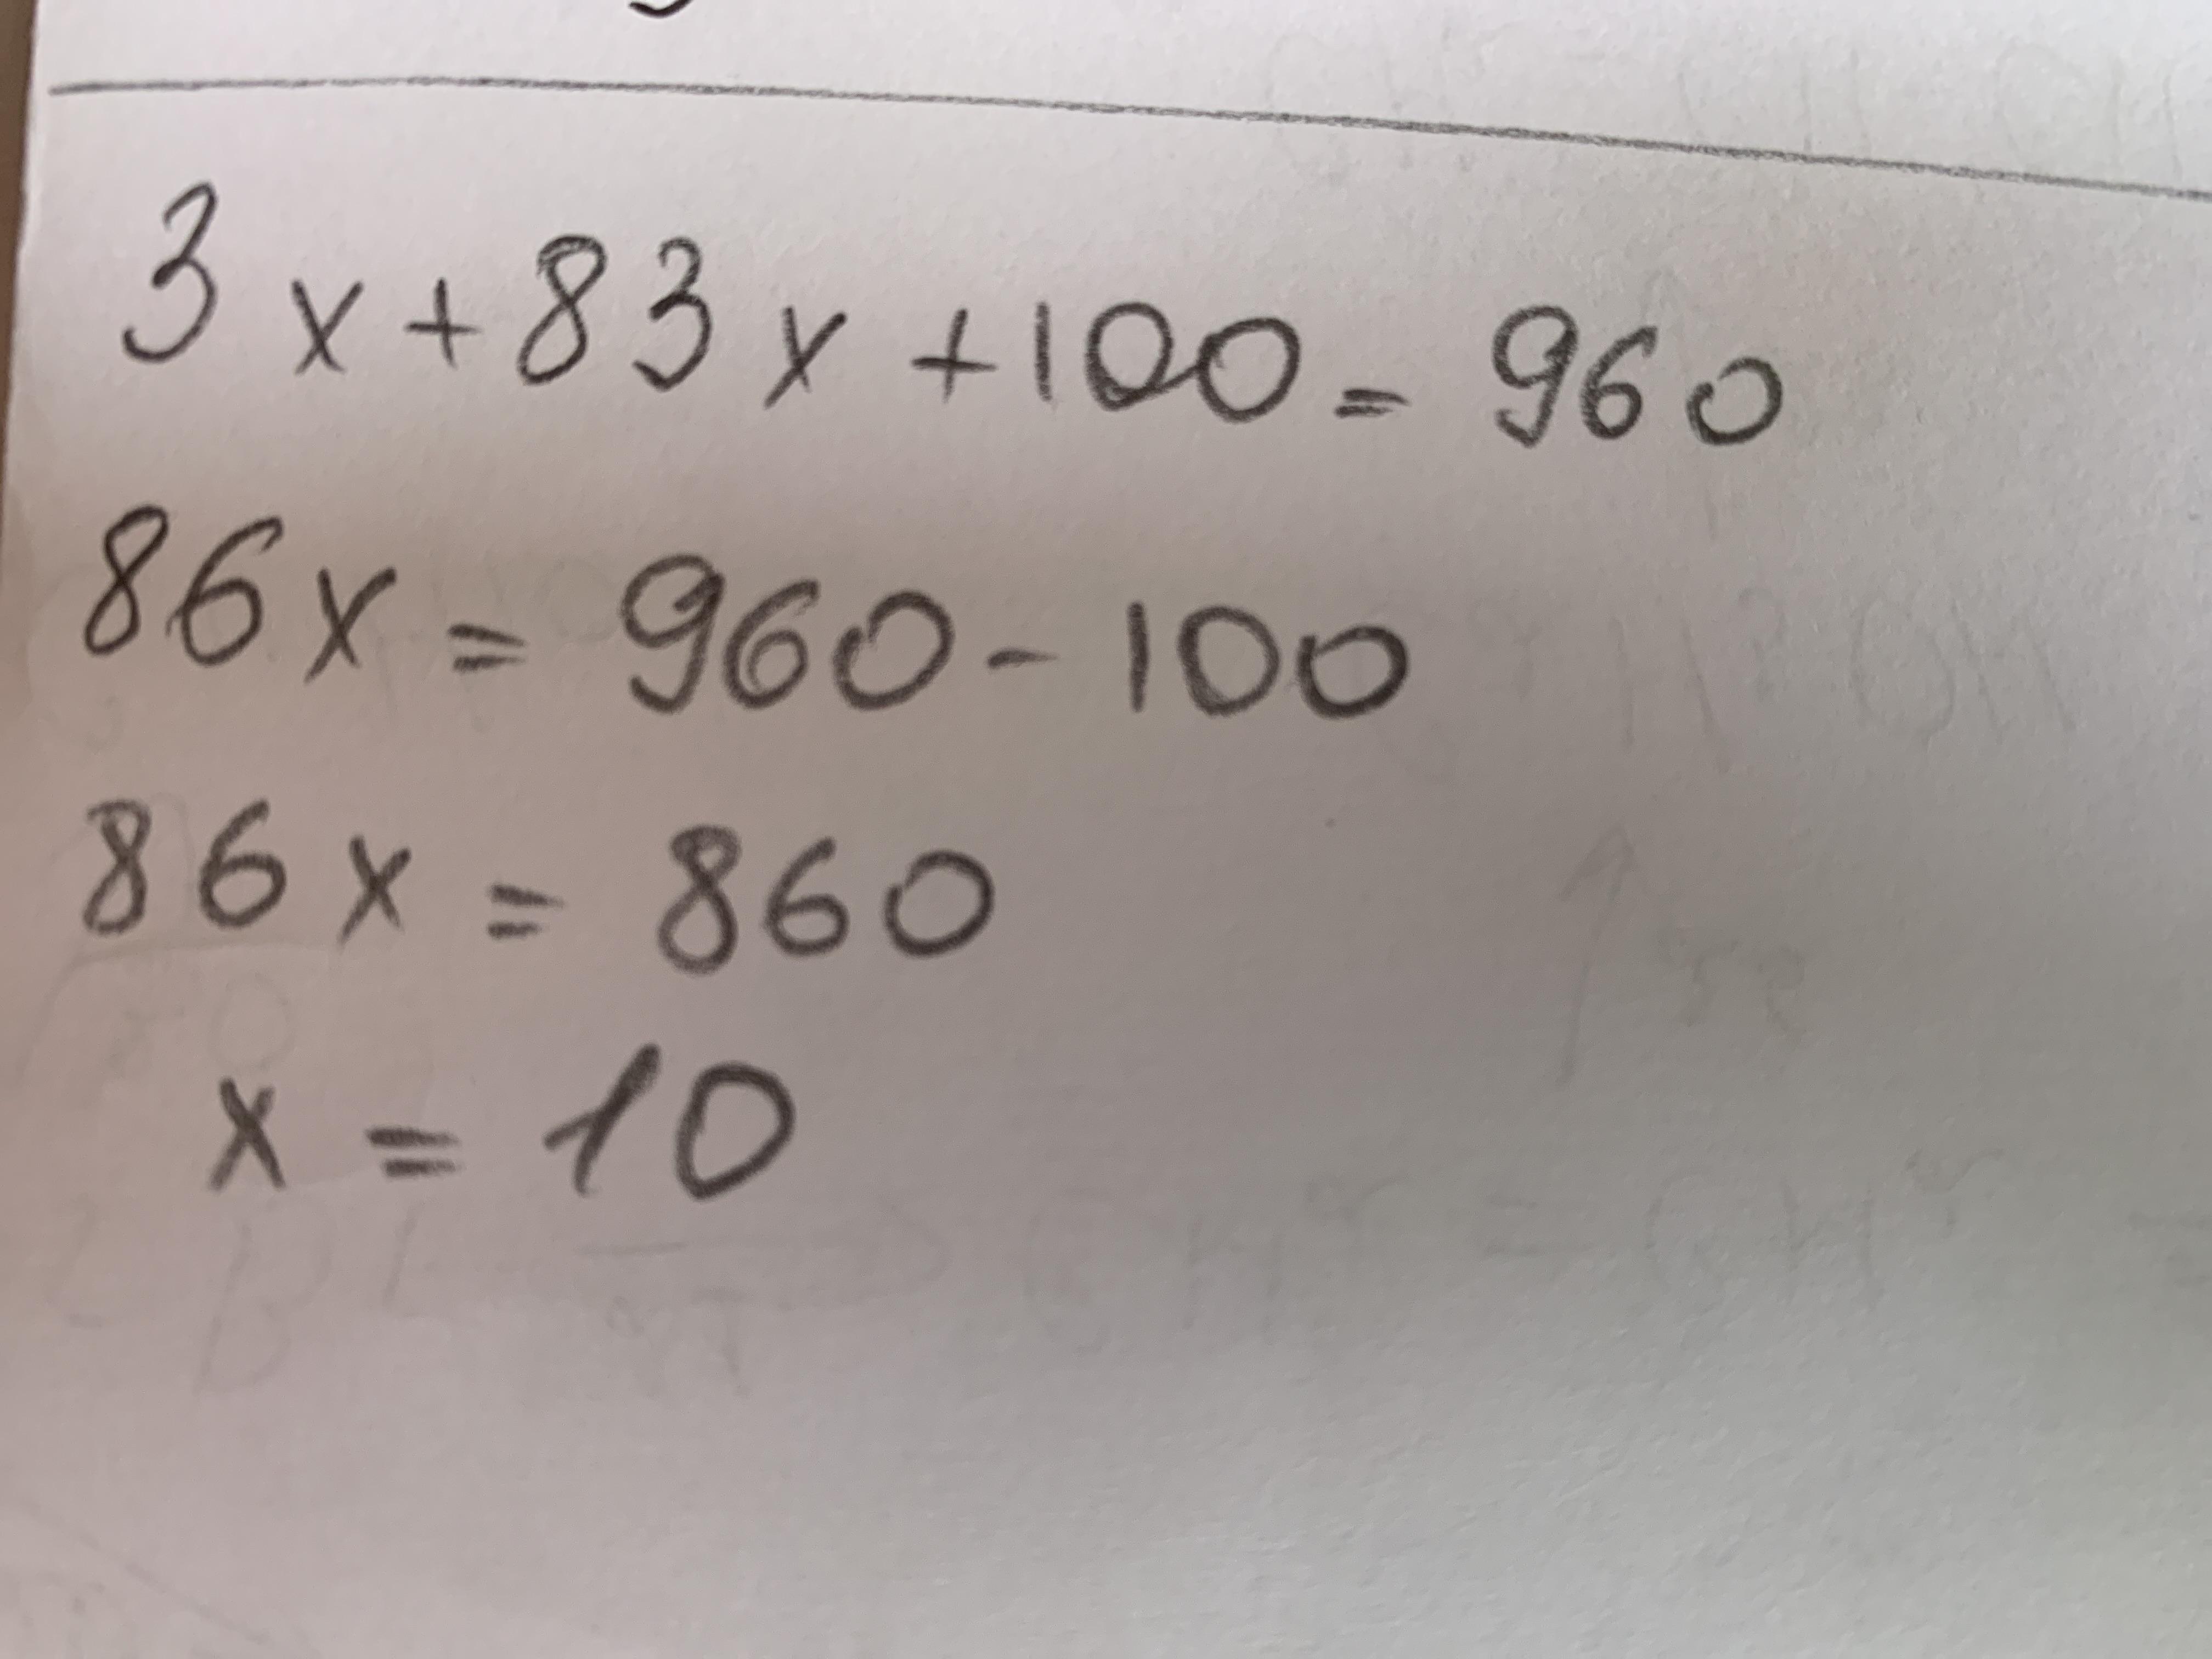 3x+83x+100=960
86x=960-100
86x=860
x=10